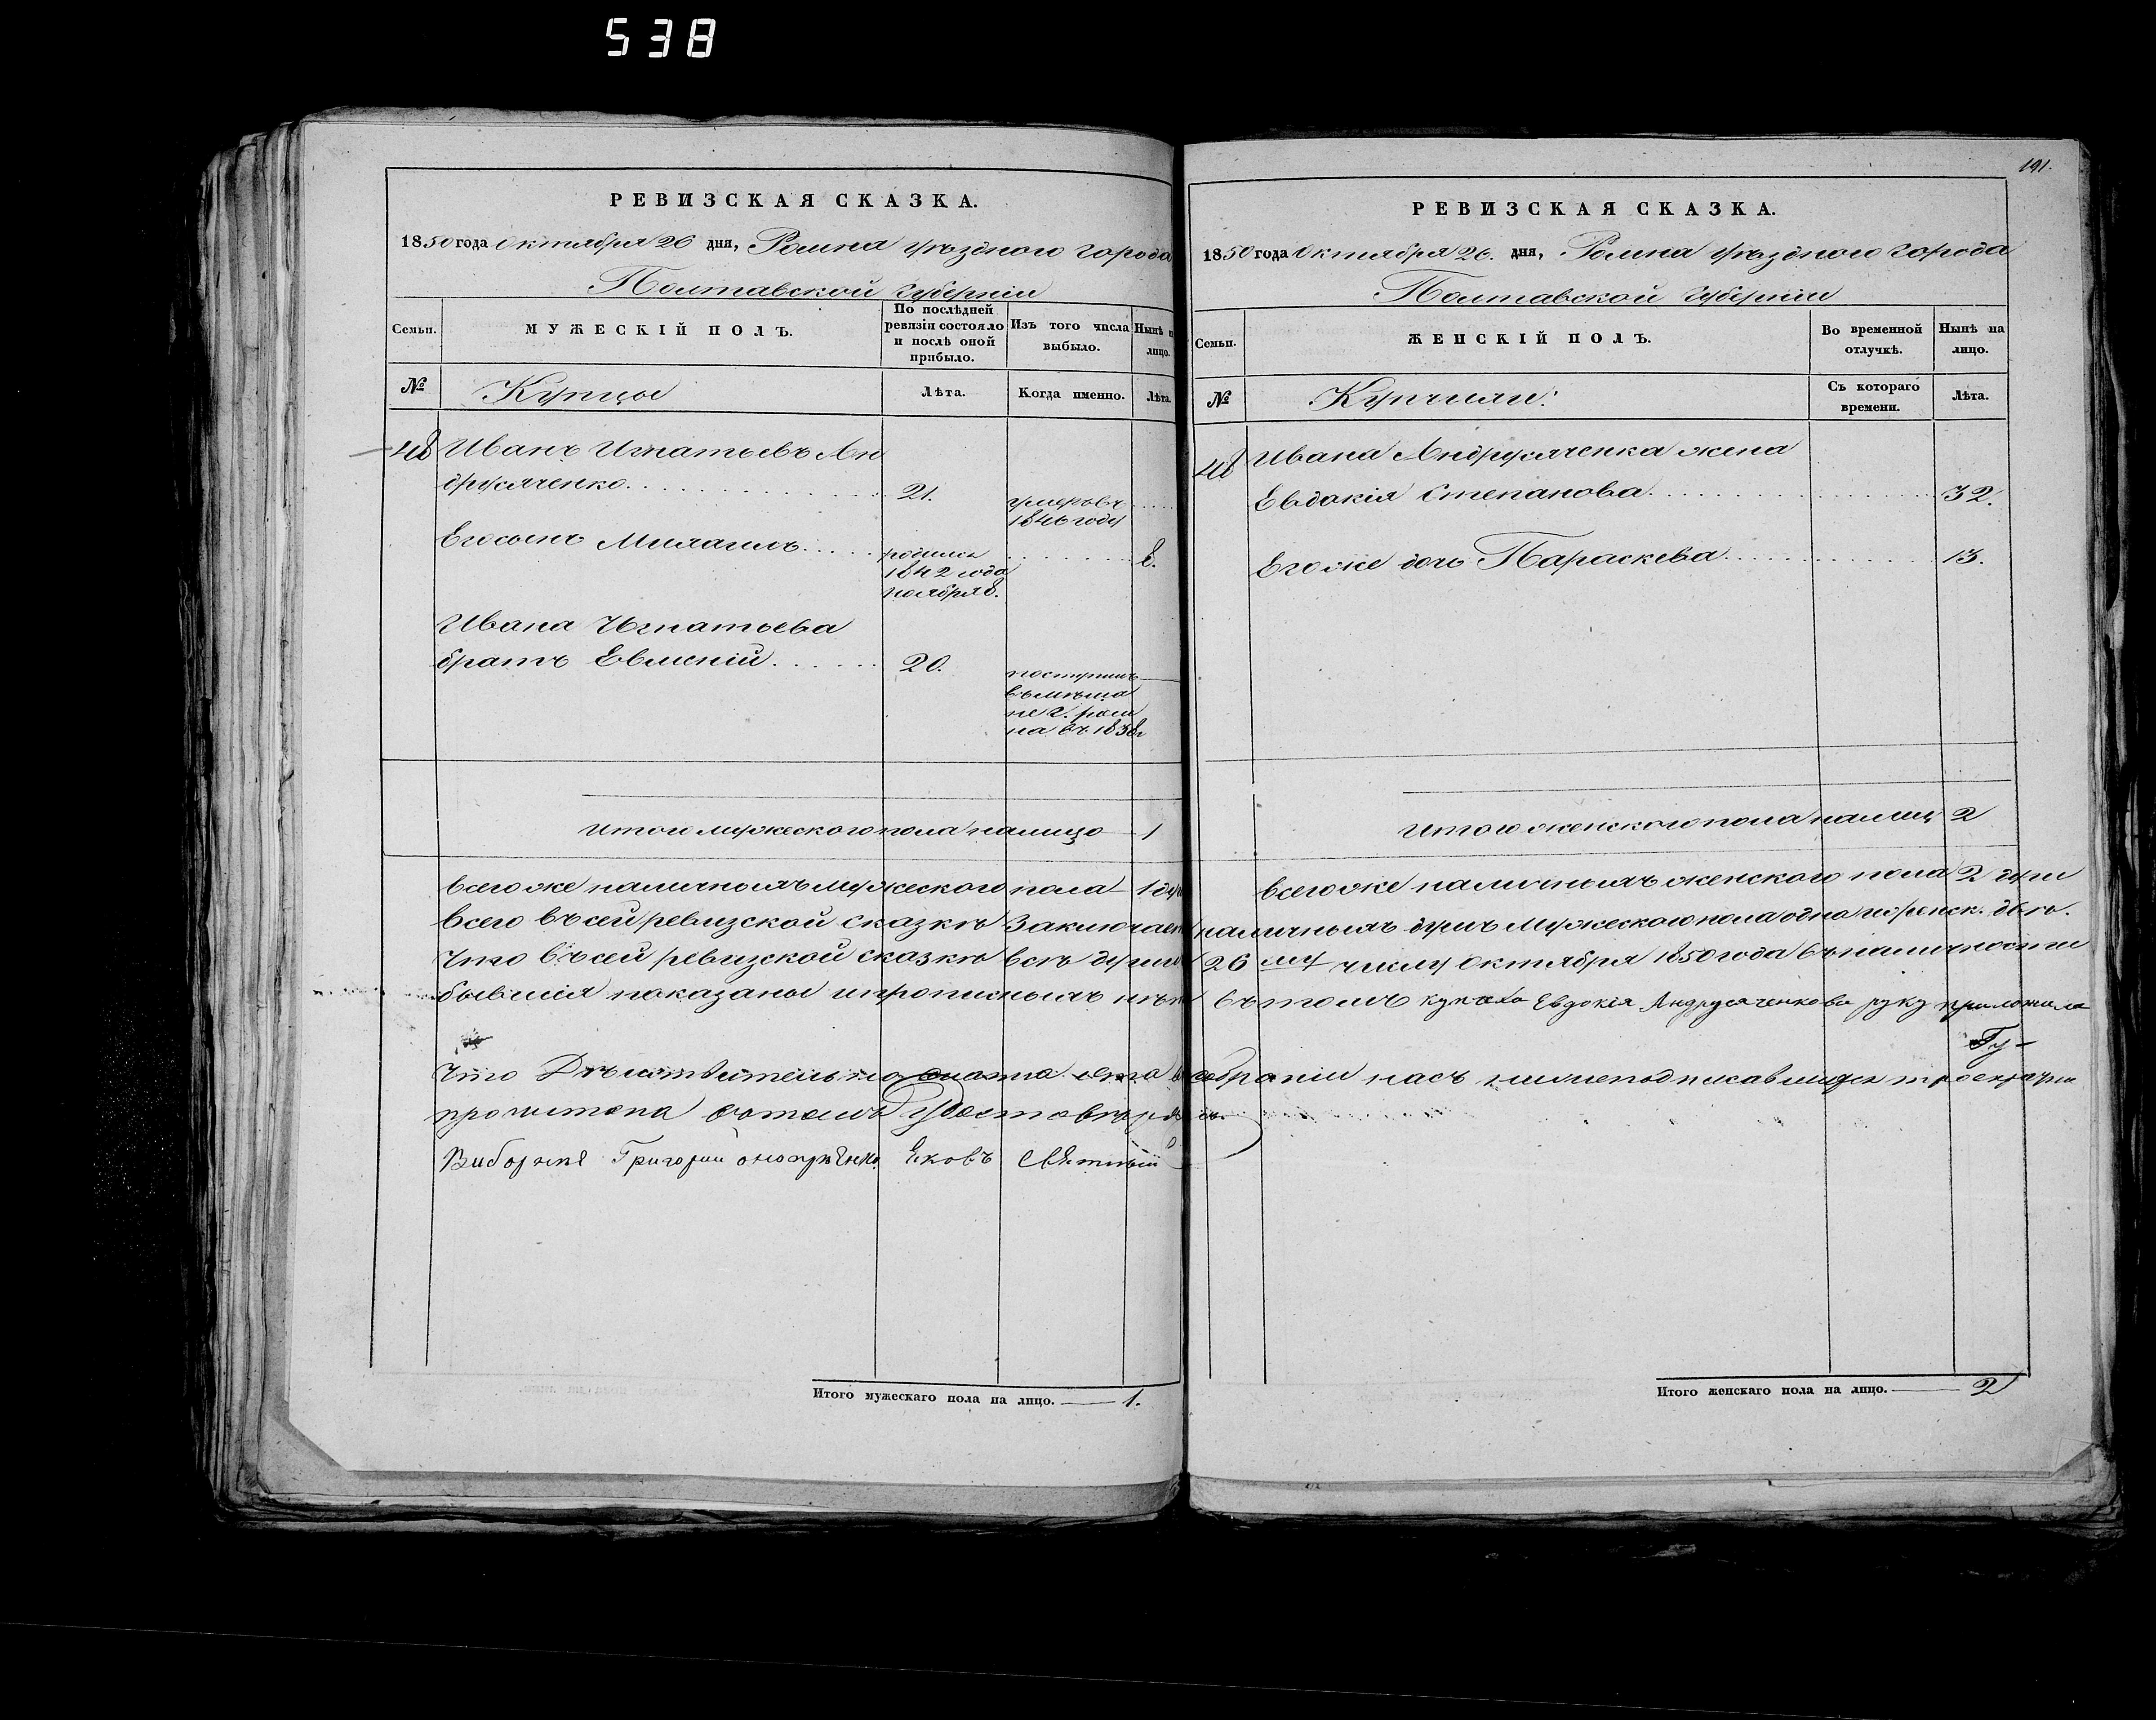 538
РЕВИЗСКАЯ СКАЗКА.
1850 года Октября 26 дня, Ромна уѣзднаго города
Полтавской Губерніи
Семьи.
МУЖЕСКІЙ ПОЛЪ.
По послѣдней ревизіи состояло и послѣ оной прибыло.
Изъ того числа выбыло.
Нынѣ на лицо.
№
Купцы
Лѣта.
Когда именно.
Лѣта.
48 Иванъ Игнатьевъ Ан
друсяченко. 21. умеръ въ
1846 году
Его сынъ Михаилъ. родился 8.
1842 года
ноября 8.
Ивана Игнатьева
братъ Евмений. 20. поступилъ
въ мѣща
не г. Ром
на въ 1838г
Итого мужеского пола налицо 1
Всегоже наличныхъ мужеского пола 1 душ
Всего въ сей ревизской сказкѣ Заключает
Что въ сей ревизской сказкѣ всѣ души
бывшія показаны и прописныхъ нѣт
Что Дѣйствительно
прочитана въ томъ Удостовѣряем
Виборние Григорий Яковъ
Итого мужескаго пола на лицо. — 1.
191.
РЕВИЗСКАЯ СКАЗКА.
1850 года Октября 26. дня, Ромна уѣзднаго города
Полтавской Губерніи
Семьи.
ЖЕНСКІЙ ПОЛЪ.
Во временной отлучкѣ.
Нынѣ на лицо.
№
Купчихи:
Съ котораго времени.
Лѣта.
48 Ивана Андрусяченка жена
Евдокія Степанова. 32.
Егоже дочь Параскева. 13.
Итого женского пола на лиц 2
Всегоже наличныхъ женского пола 2 души
наличныхъ душъ Мужеского пола одна и женск. двѣ.
26 му числу Октября 1850 года въ наличности
въ томъ купчиха Евдокія Андрусяченкова руку приложила
собраніи насъ нижеподписавшихся
Итого женскаго пола на лицо. — 2